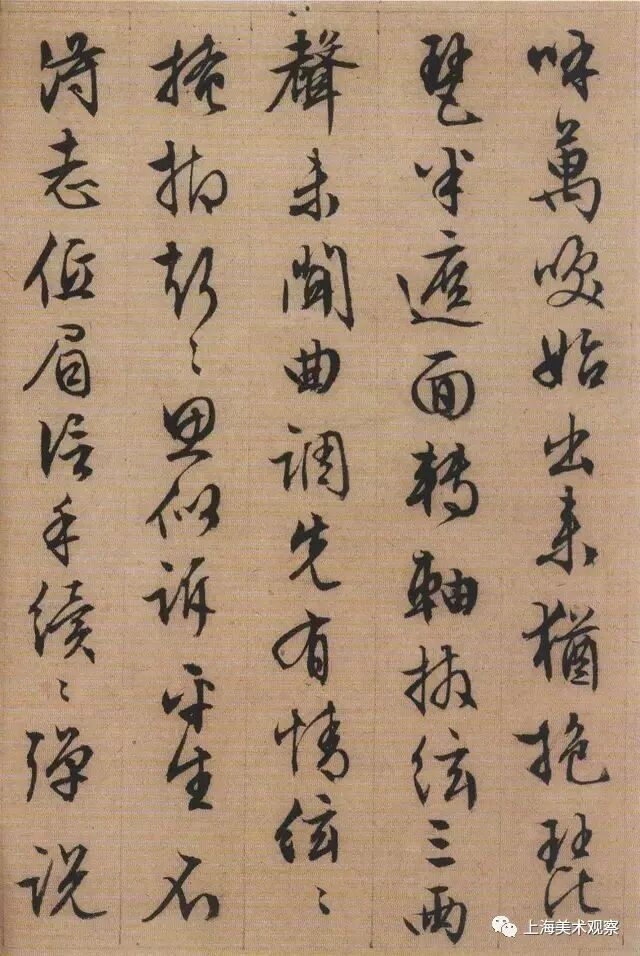 呼萬喚始出来猶抱琵
琶半遮面轉軸撥絃三兩
聲未聞曲調先有情絃〻
掩抑聲〻思似訴平生不
得志低眉信手續〻彈説
上海美术观察